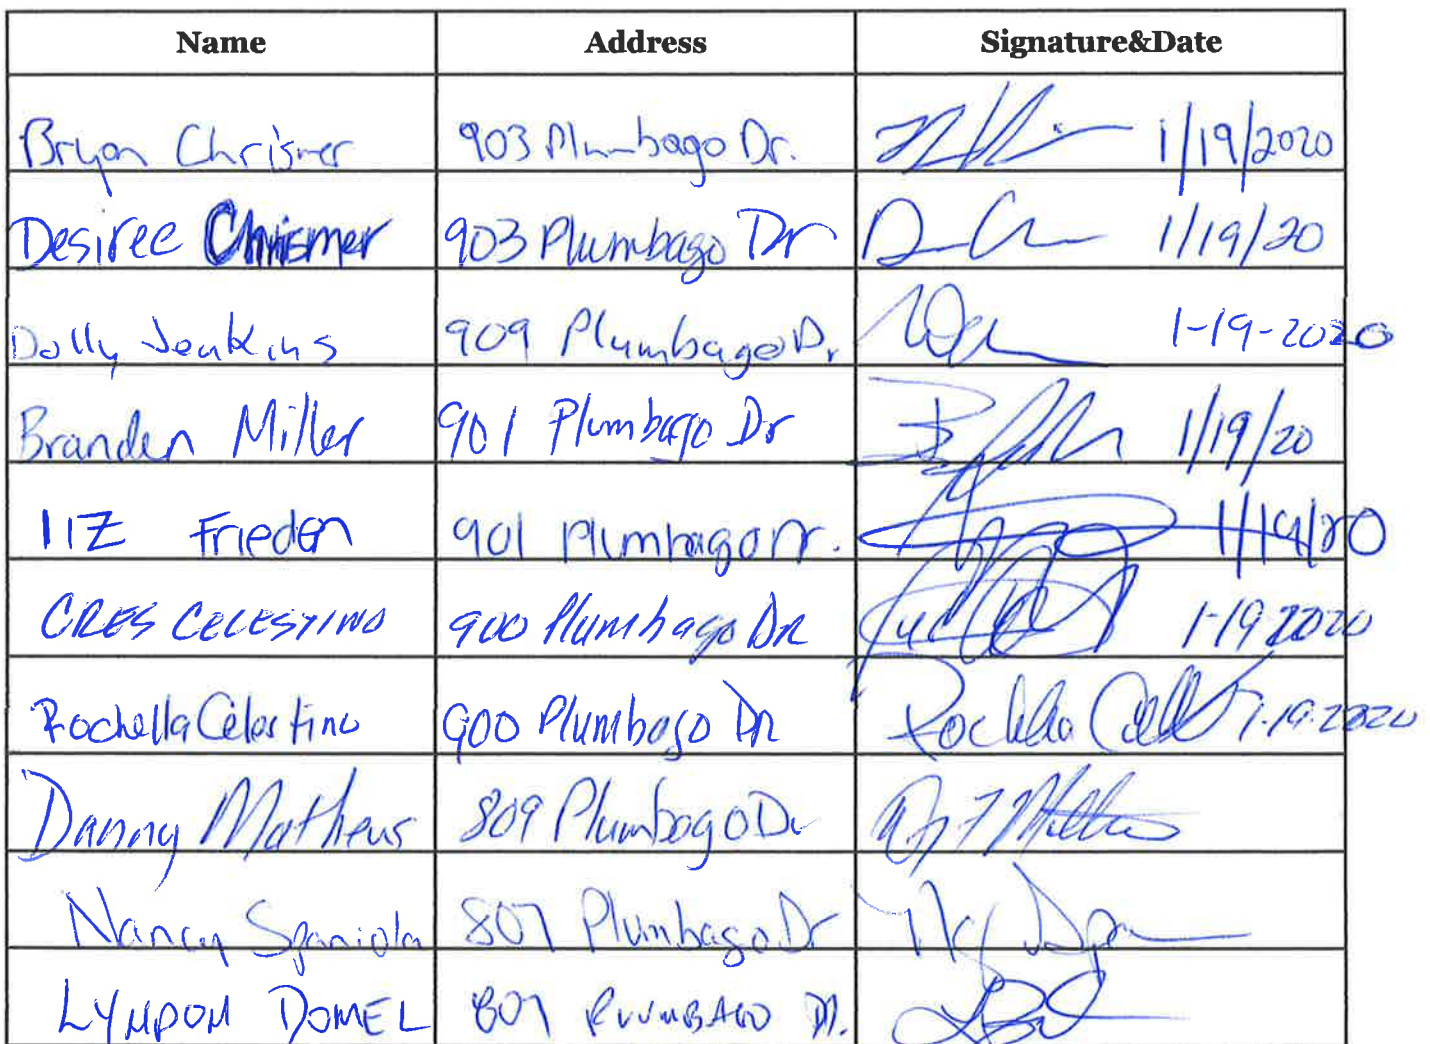 Name Address Signature&Date
Bryon Chrismer 903 Plumbago Dr. 1/19/2020
Desiree Chrismer 903 Plumbago Dr 1/19/20
Dolly Jenkins 909 Plumbago Dr 1-19-2020
Branden Miller 901 Plumbago Dr 1/19/20
liz Frieden 901 Plumbago Dr. 1/19/20
CRES CELESTINO 900 Plumbago DR 1-19-2020
Rochella Celestino 900 Plumbago Dr Rochella 1-19-2020
Danny Matheus 809 Plumbago Dr
Nancy Spaniola 807 Plumbago Dr
LYNDON DOMEL 807 PLUMBAGO DR.